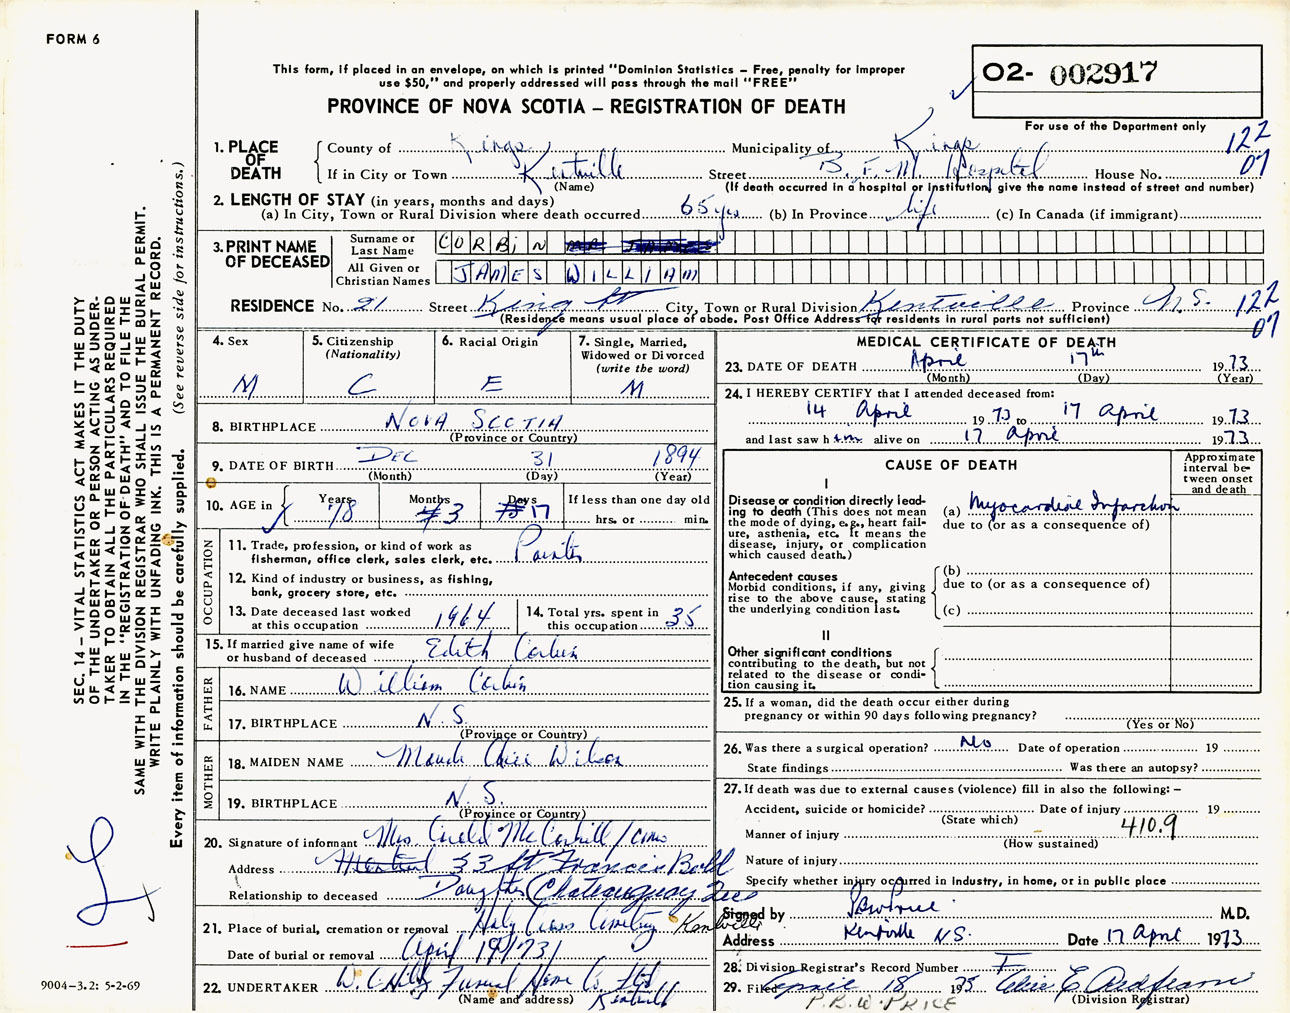 FORM 6
This form, if placed in an envelope, on which is printed "Dominion Statistics – Free, penalty for improper
use $50," and properly addressed will pass through the mail "FREE"
PROVINCE OF NOVA SCOTIA – REGISTRATION OF DEATH
02- 002917
For use of the Department only
122
07
1. PLACE OF DEATH County of Kings Municipality of Kings
If in City or Town Kentville Street B. F. M. Hospital House No.
(Name) (If death occurred in a hospital or institution, give the name instead of street and number)
2. LENGTH OF STAY (in years, months and days)
(a) In City, Town or Rural Division where death occurred 65 yrs (b) In Province life (c) In Canada (if immigrant)
3. PRINT NAME OF DECEASED Surname or Last Name CORBIN
All Given or Christian Names JAMES WILLIAM
RESIDENCE No. 21 Street King St City, Town or Rural Division Kentville Province N.S. 122
(Residence means usual place of abode. Post Office Address for residents in rural parts not sufficient) 07
4. Sex M
5. Citizenship (Nationality) C
6. Racial Origin E
7. Single, Married, Widowed or Divorced (write the word) M
8. BIRTHPLACE NOVA SCOTIA
(Province or Country)
9. DATE OF BIRTH DEC 31 1894
(Month) (Day) (Year)
10. AGE in Years 78 Months 3 Days 17 If less than one day old
hrs. or min.
OCCUPATION
11. Trade, profession, or kind of work as
fisherman, office clerk, sales clerk, etc. Painter
12. Kind of industry or business, as fishing,
bank, grocery store, etc.
13. Date deceased last worked at this occupation 1964
14. Total yrs. spent in this occupation 35
15. If married give name of wife
or husband of deceased Edith Corbin
FATHER
16. NAME William Corbin
17. BIRTHPLACE N.S.
(Province or Country)
MOTHER
18. MAIDEN NAME Maude Wilson
19. BIRTHPLACE N.S.
(Province or Country)
20. Signature of informant Mrs.
Address 33 St Francis Blvd
Relationship to deceased Daughter Chateauguay Que
21. Place of burial, cremation or removal Holy Cross Cemetery Kentville
Date of burial or removal April 19/73
22. UNDERTAKER W. C. Hiltz Funeral Home Co. Ltd
(Name and address) Kentville
MEDICAL CERTIFICATE OF DEATH
23. DATE OF DEATH April 17th 1973
(Month) (Day) (Year)
24. I HEREBY CERTIFY that I attended deceased from:
14 April 1973 to 17 April 1973
and last saw h im alive on 17 April 1973
CAUSE OF DEATH
Approximate interval between onset and death
I
Disease or condition directly leading to death (This does not mean the mode of dying, e.g., heart failure, asthenia, etc. It means the disease, injury, or complication which caused death.)
(a) Myocardial Infarction
due to (or as a consequence of)
Antecedent causes
Morbid conditions, if any, giving rise to the above cause, stating the underlying condition last.
(b)
due to (or as a consequence of)
(c)
II
Other significant conditions
contributing to the death, but not related to the disease or condition causing it.
25. If a woman, did the death occur either during
pregnancy or within 90 days following pregnancy?
(Yes or No)
26. Was there a surgical operation? No Date of operation 19
State findings Was there an autopsy?
27. If death was due to external causes (violence) fill in also the following: –
Accident, suicide or homicide? Date of injury 19
(State which) 410.9
Manner of injury
(How sustained)
Nature of injury
Specify whether injury occurred in industry, in home, or in public place
Signed by M.D.
Address Kentville N.S. Date 17 April 1973
28. Division Registrar's Record Number
29. Filed April 18
(Division Registrar)
P.B.W. PRICE
SEC. 14 – VITAL STATISTICS ACT MAKES IT THE DUTY
OF THE UNDERTAKER OR PERSON ACTING AS UNDER-
TAKER TO OBTAIN ALL THE PARTICULARS REQUIRED
IN THE "REGISTRATION OF DEATH" AND TO FILE THE
SAME WITH THE DIVISION REGISTRAR WHO SHALL ISSUE THE BURIAL PERMIT.
WRITE PLAINLY WITH UNFADING INK. THIS IS A PERMANENT RECORD.
Every item of information should be carefully supplied. (See reverse side for instructions.)
9004-3.2: 5-2-69